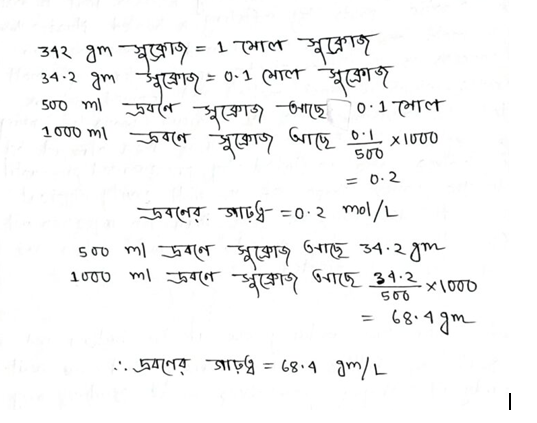 342 gm সুক্রোজ = 1 মোল সুক্রোজ
34.2 gm সুক্রোজ = 0.1 মোল সুক্রোজ
500 ml দ্রবনে সুক্রোজ আছে 0.1 মোল
1000 ml দ্রবনে সুক্রোজ আছে 0.1/500 × 1000
= 0.2
দ্রবনের গাঢ়ত্ব = 0.2 mol/L
500 ml দ্রবনে সুক্রোজ আছে 34.2 gm
1000 ml দ্রবনে সুক্রোজ আছে 34.2/500 × 1000
= 68.4 gm
∴ দ্রবনের গাঢ়ত্ব = 68.4 gm/L